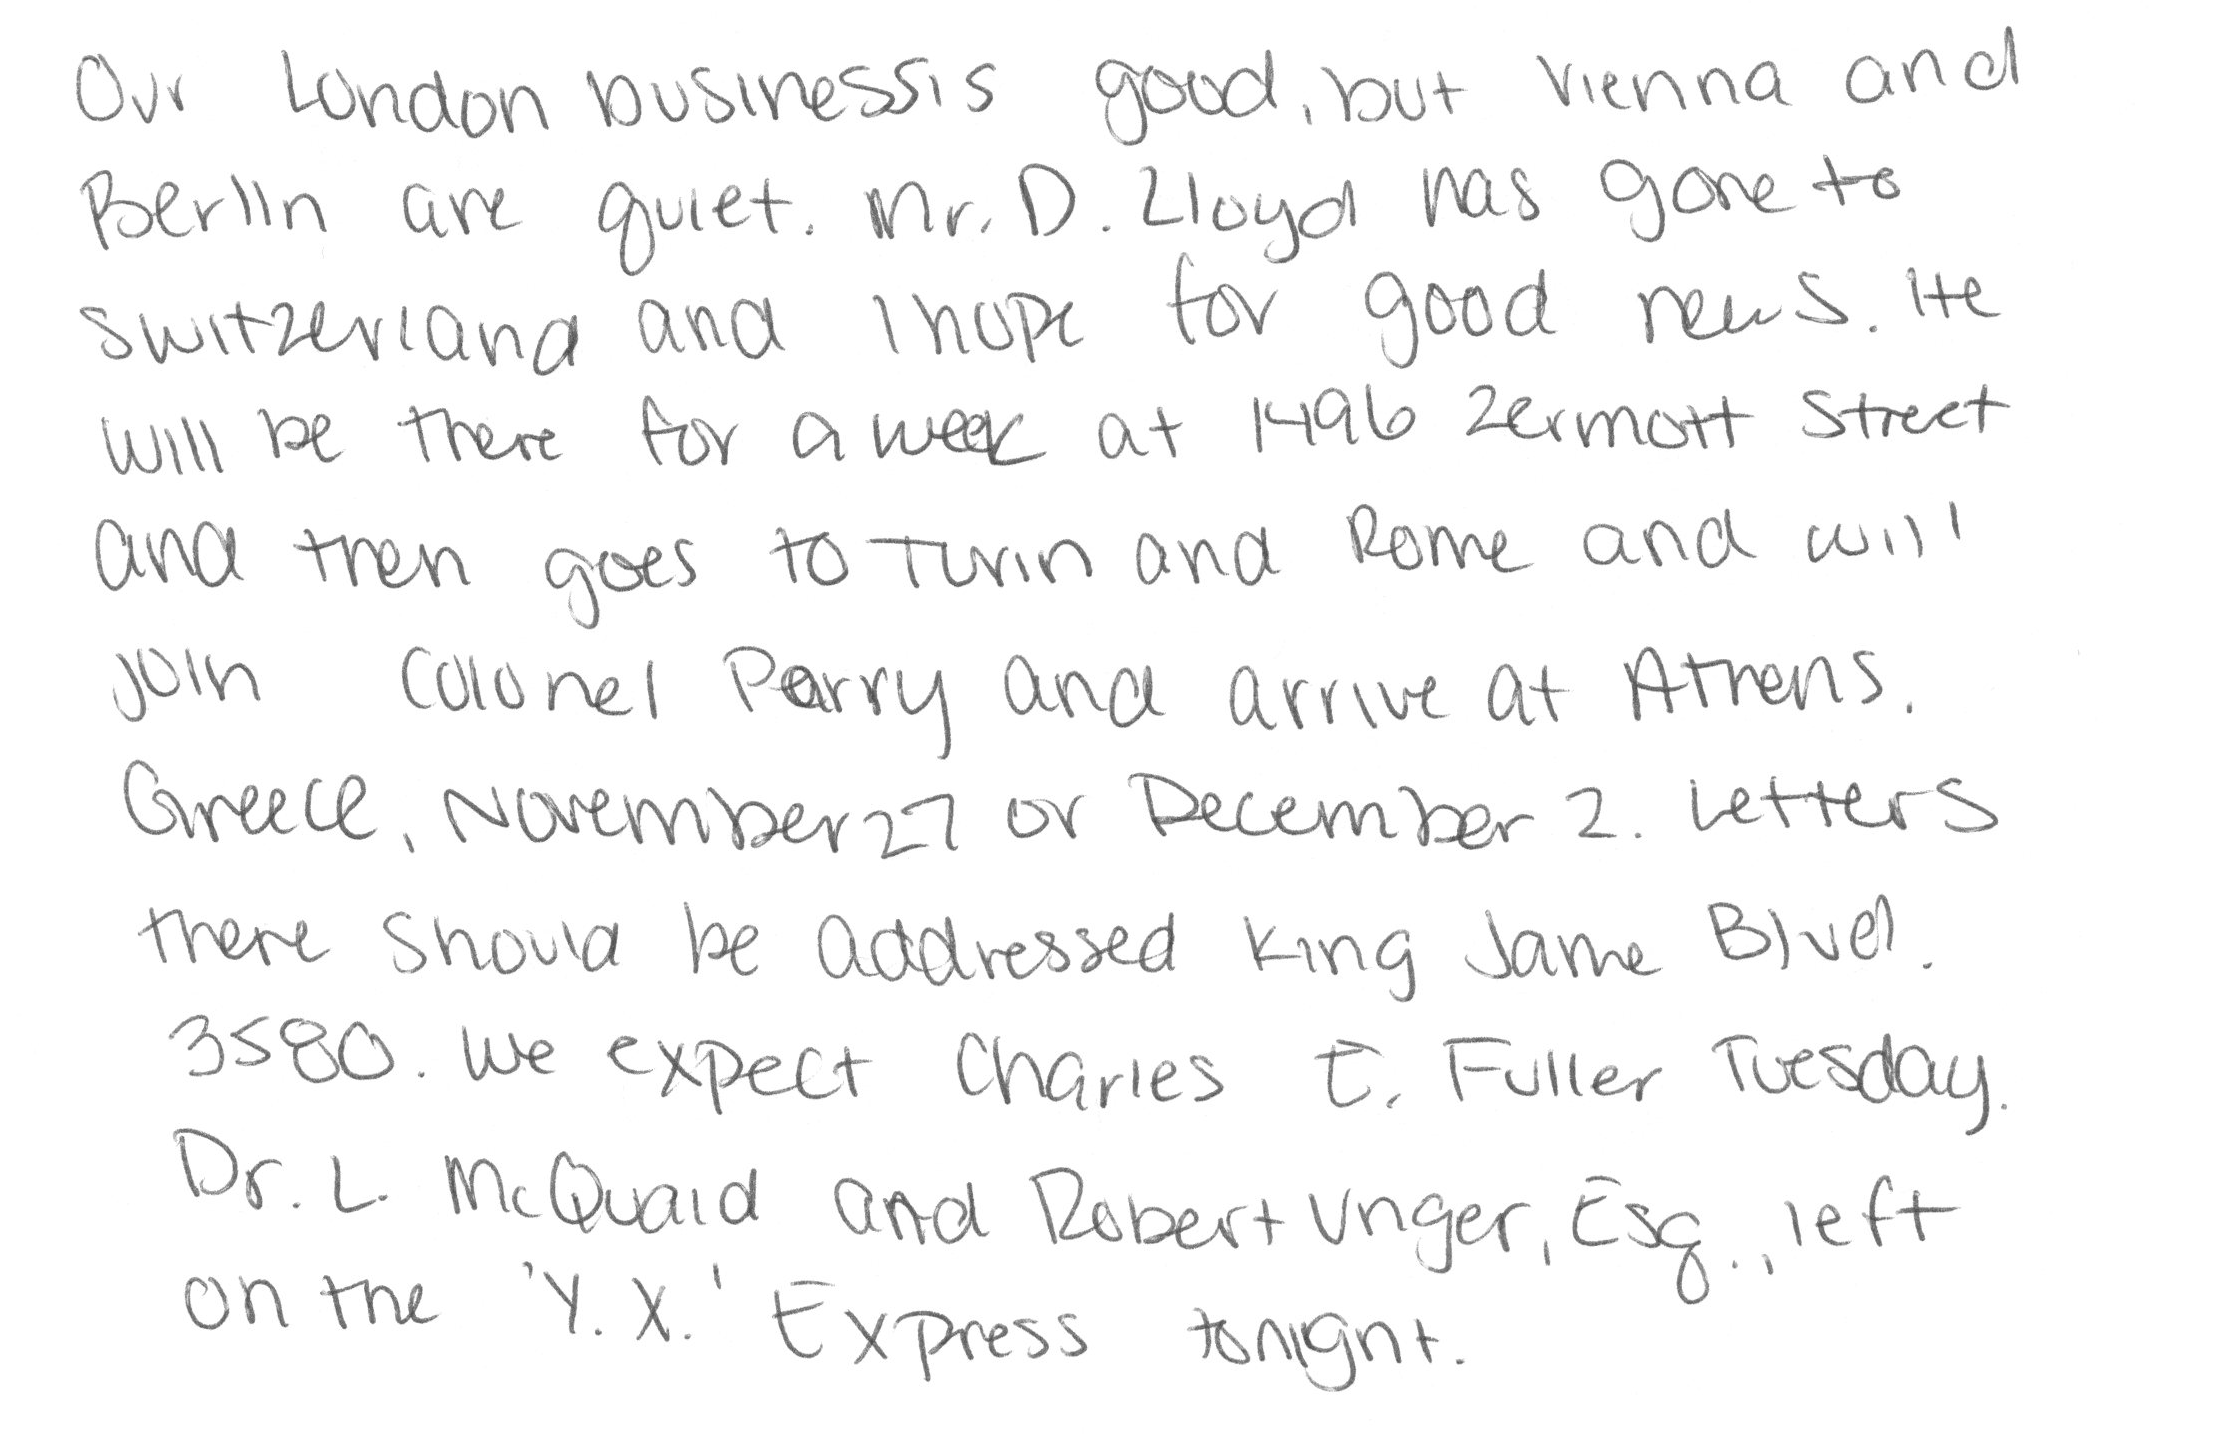 Our London business is good, but Vienna and
Berlin are quiet. Mr. D. Lloyd has gone to
Switzerland and I hope for good news. He
will be there for a week at 1496 Zermott Street
and then goes to Turin and Rome and will
join Colonel Parry and arrive at Athens.
Greece, November 27 or December 2. Letters
there should be addressed King Jame Blvd.
3580. We expect Charles E. Fuller Tuesday.
Dr. L. McQuaid and Robert Unger, Esq., left
on the 'Y. X.' Express tonight.